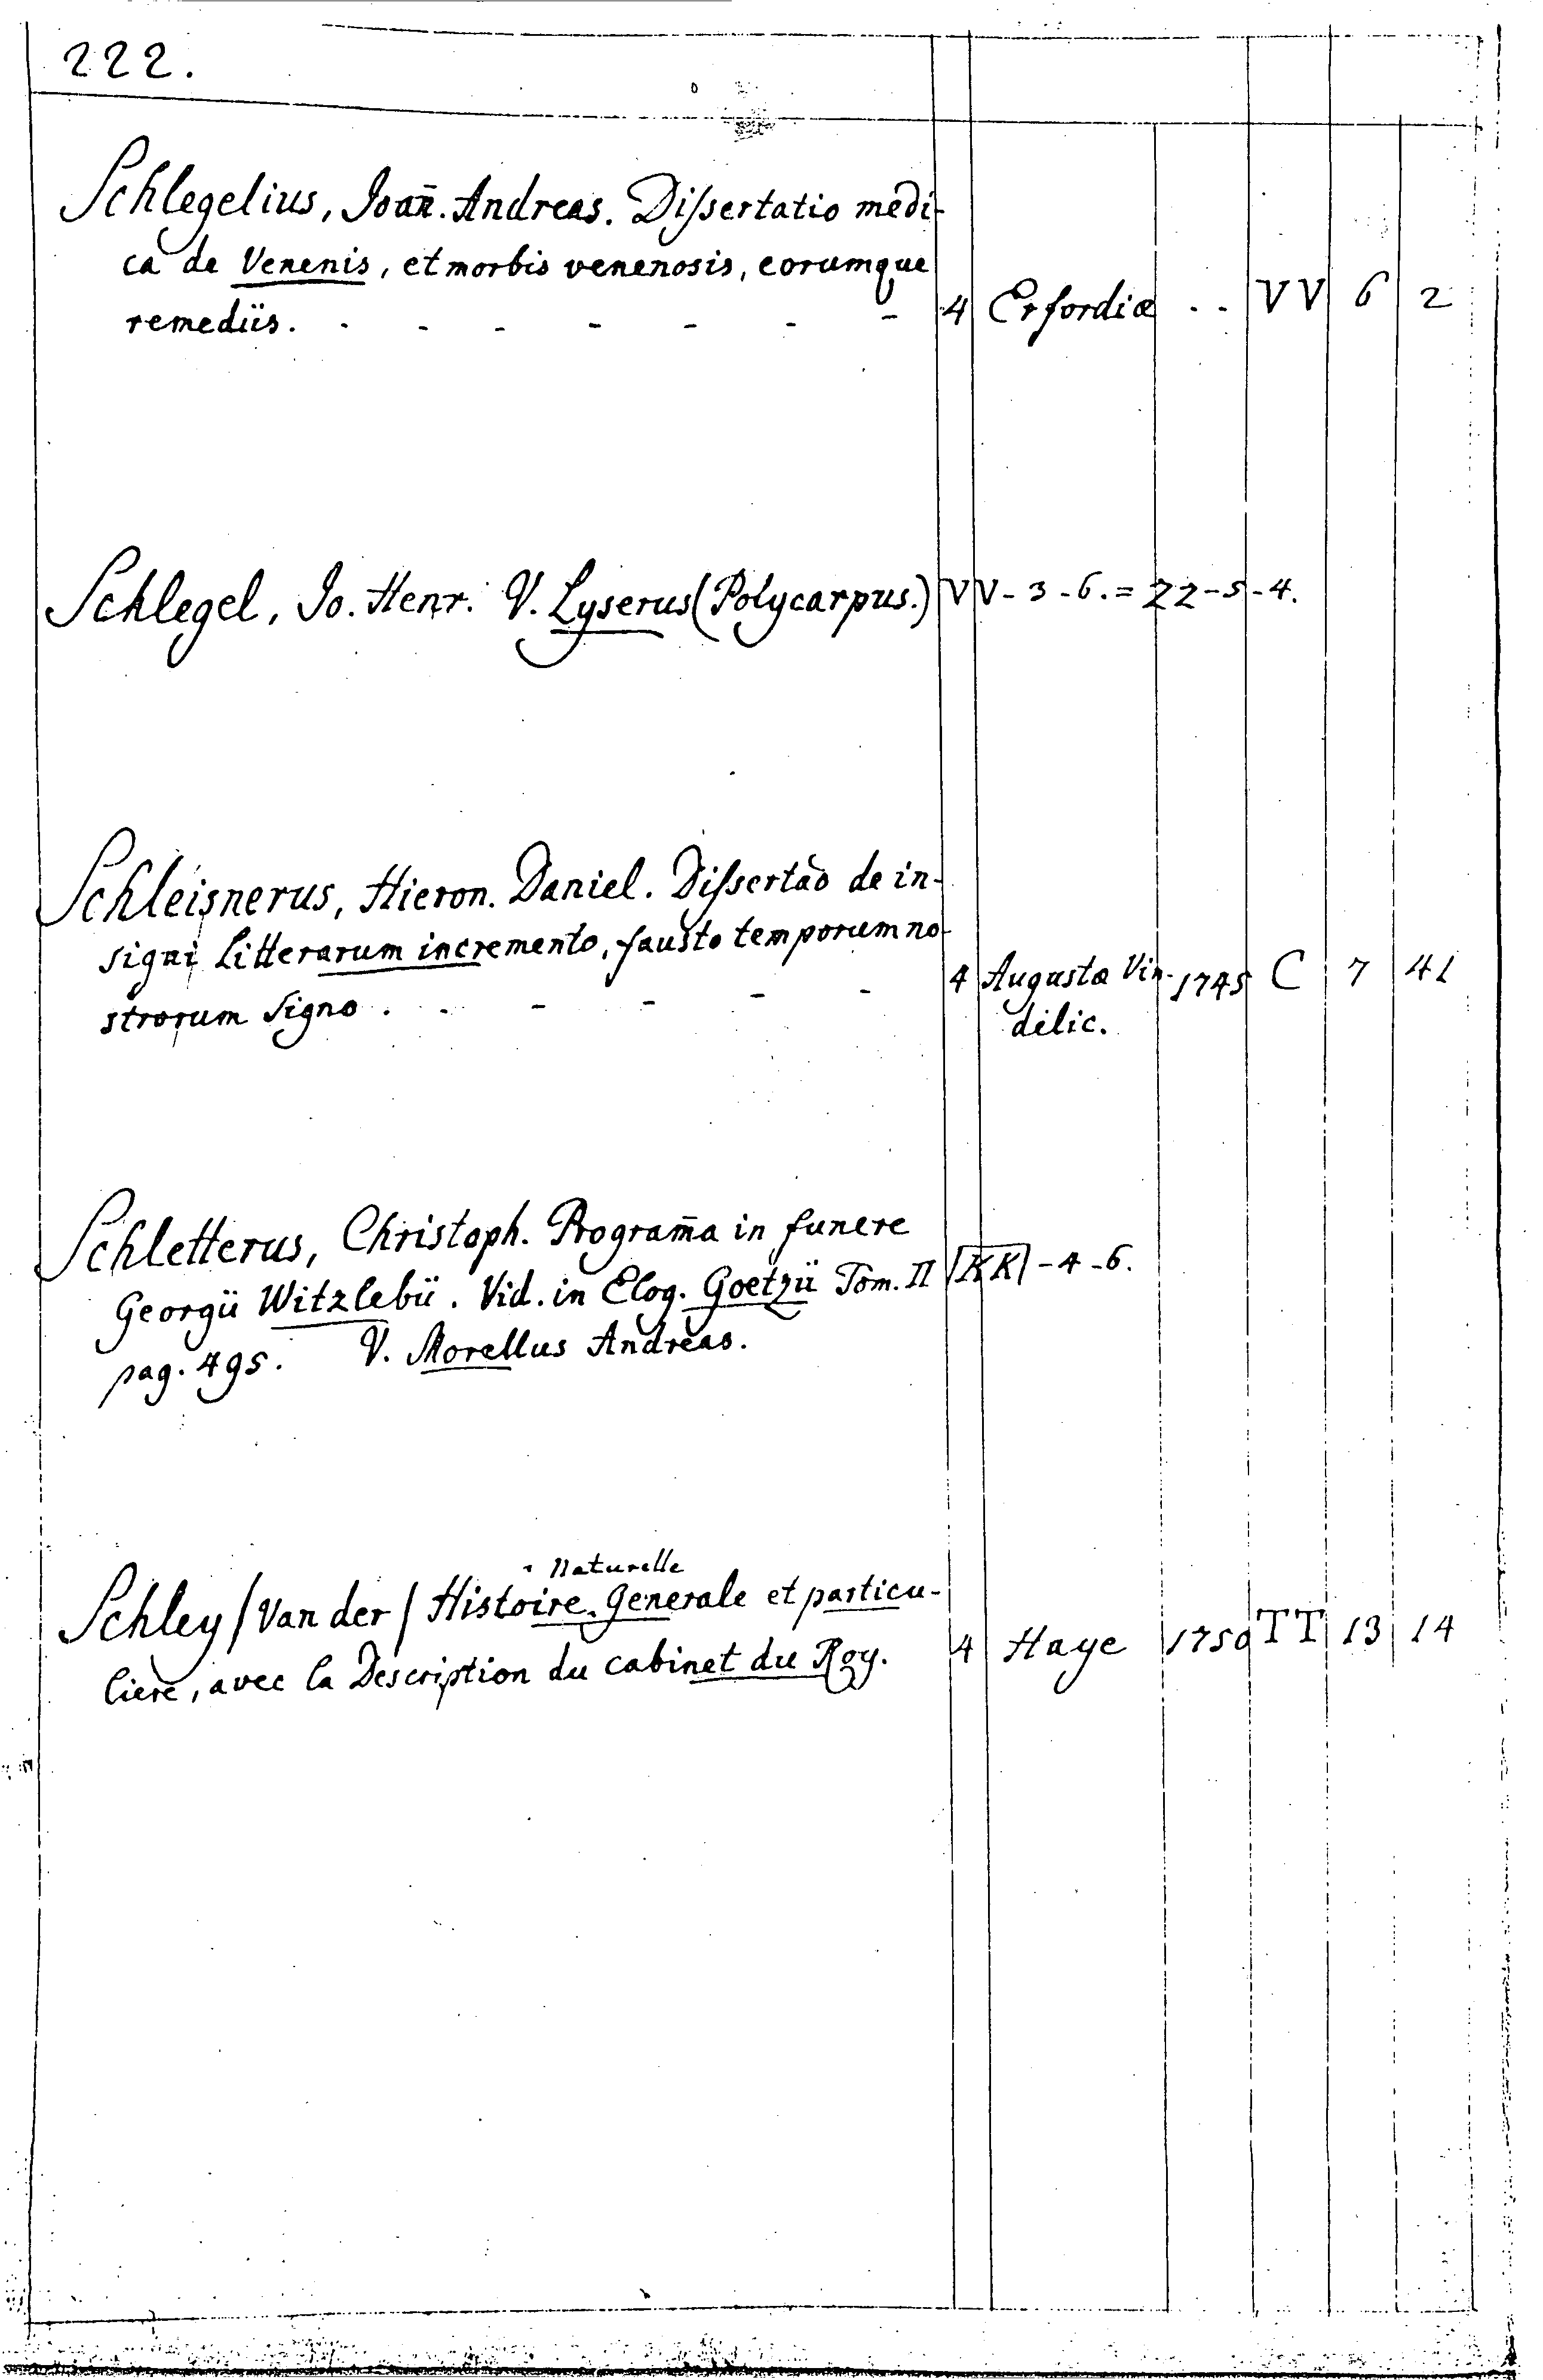 222.
Schlegelius, Joan̄. Andreas. Dissertatio medi-
ca de Venenis, et morbis venenosis, eorumque
remediis. . - - - - - - 4 Erfordiæ .. VV 6 2
Schlegel, Jo. Henr. V. Lyserus (Polycarpus.) VV-3-6.=22-5-4.
Schleisnerus, Hieron. Daniel. Dissertāo de in-
signi Litterarum incremento, fausto temporum no-
strorum Signo . . - - - - 4 Augustæ Vin- 1745 C 7 41
delic.
Schletterus, Christoph. Program̄a in funere
Georgii Witzlebii. Vid. in Elog. Goetzii Tom. II KK-4-6.
pag. 495. V. Morellus Andreas.
Naturelle
Schley / Van der / Histoire Generale et particu-
liere, avec la Description du cabinet du Roy. 4 Haye 1750 TT 13 14